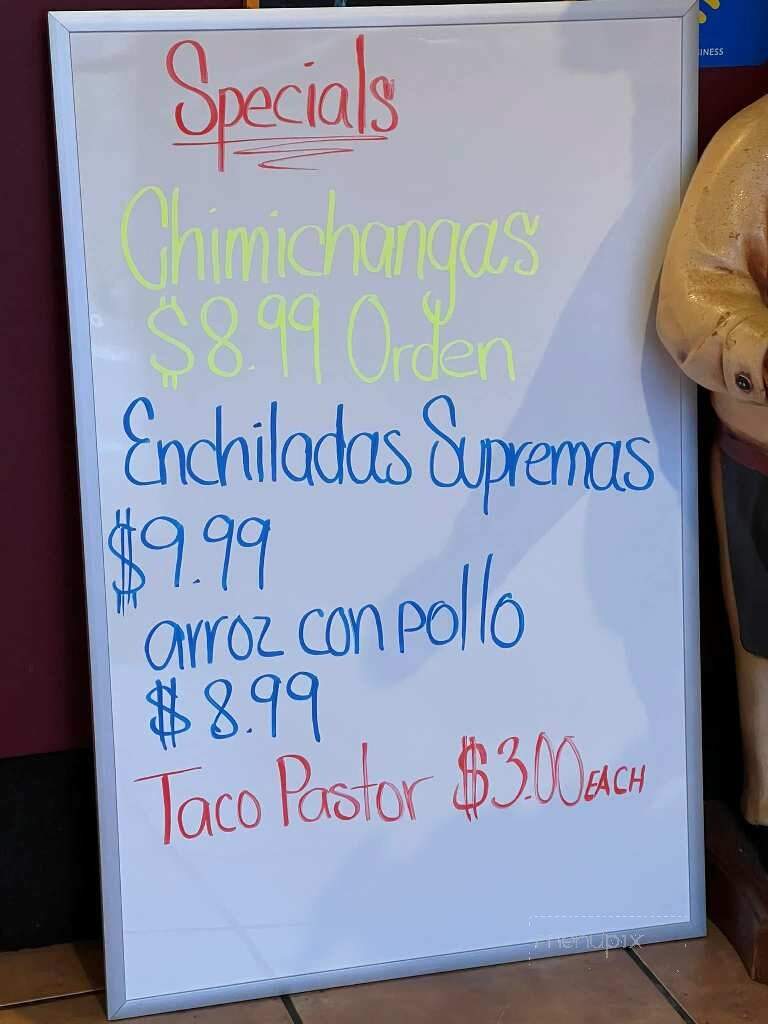 Specials
Chimichangas
$8.99 Orden
Enchiladas Supremas
$9.99
arroz con pollo
$8.99
Taco Pastor $3.00 EACH
menupix